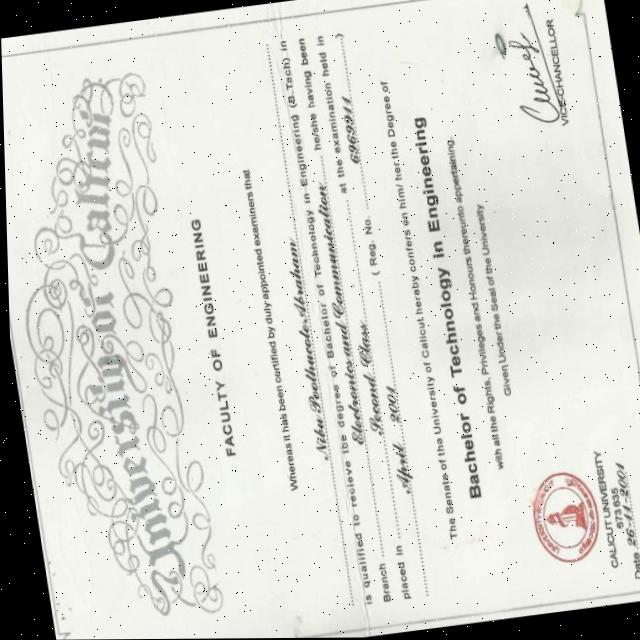 University of Calicut
FACULTY OF ENGINEERING
Whereas it has been certified by duly appointed examiners that
Abraham he/she having been
is qualified to recieve the degree of Bachelor of Technology in Engineering (B.Tech) in
Branch Electronics and Communication at the examination held in
placed in Second Class (Reg. No. 6969211)
April 2001
The Senate of the University of Calicut hereby confers on him/ her the Degree of
Bachelor of Technology in Engineering
with all the Rights, Privileges and Honours thereunto appertaining.
Given Under the Seal of the University
CALICUT UNIVERSITY
673 635
Date
VICE-CHANCELLOR